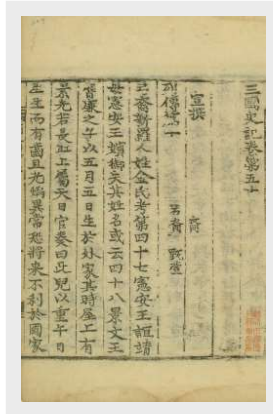 三國史記卷第五十
宣撰
列傳第十 弓裔 甄萱
弓裔新羅人姓金氏考第四十七憲安王誼靖
母憲安王嬪御失其姓名或云四十八景文王
膺廉之子以五月五日生於外家其時屋上有
素光若長虹上屬天日官奏曰此兒以重午日
生生而有齒且光焰異常恐將來不利於國家